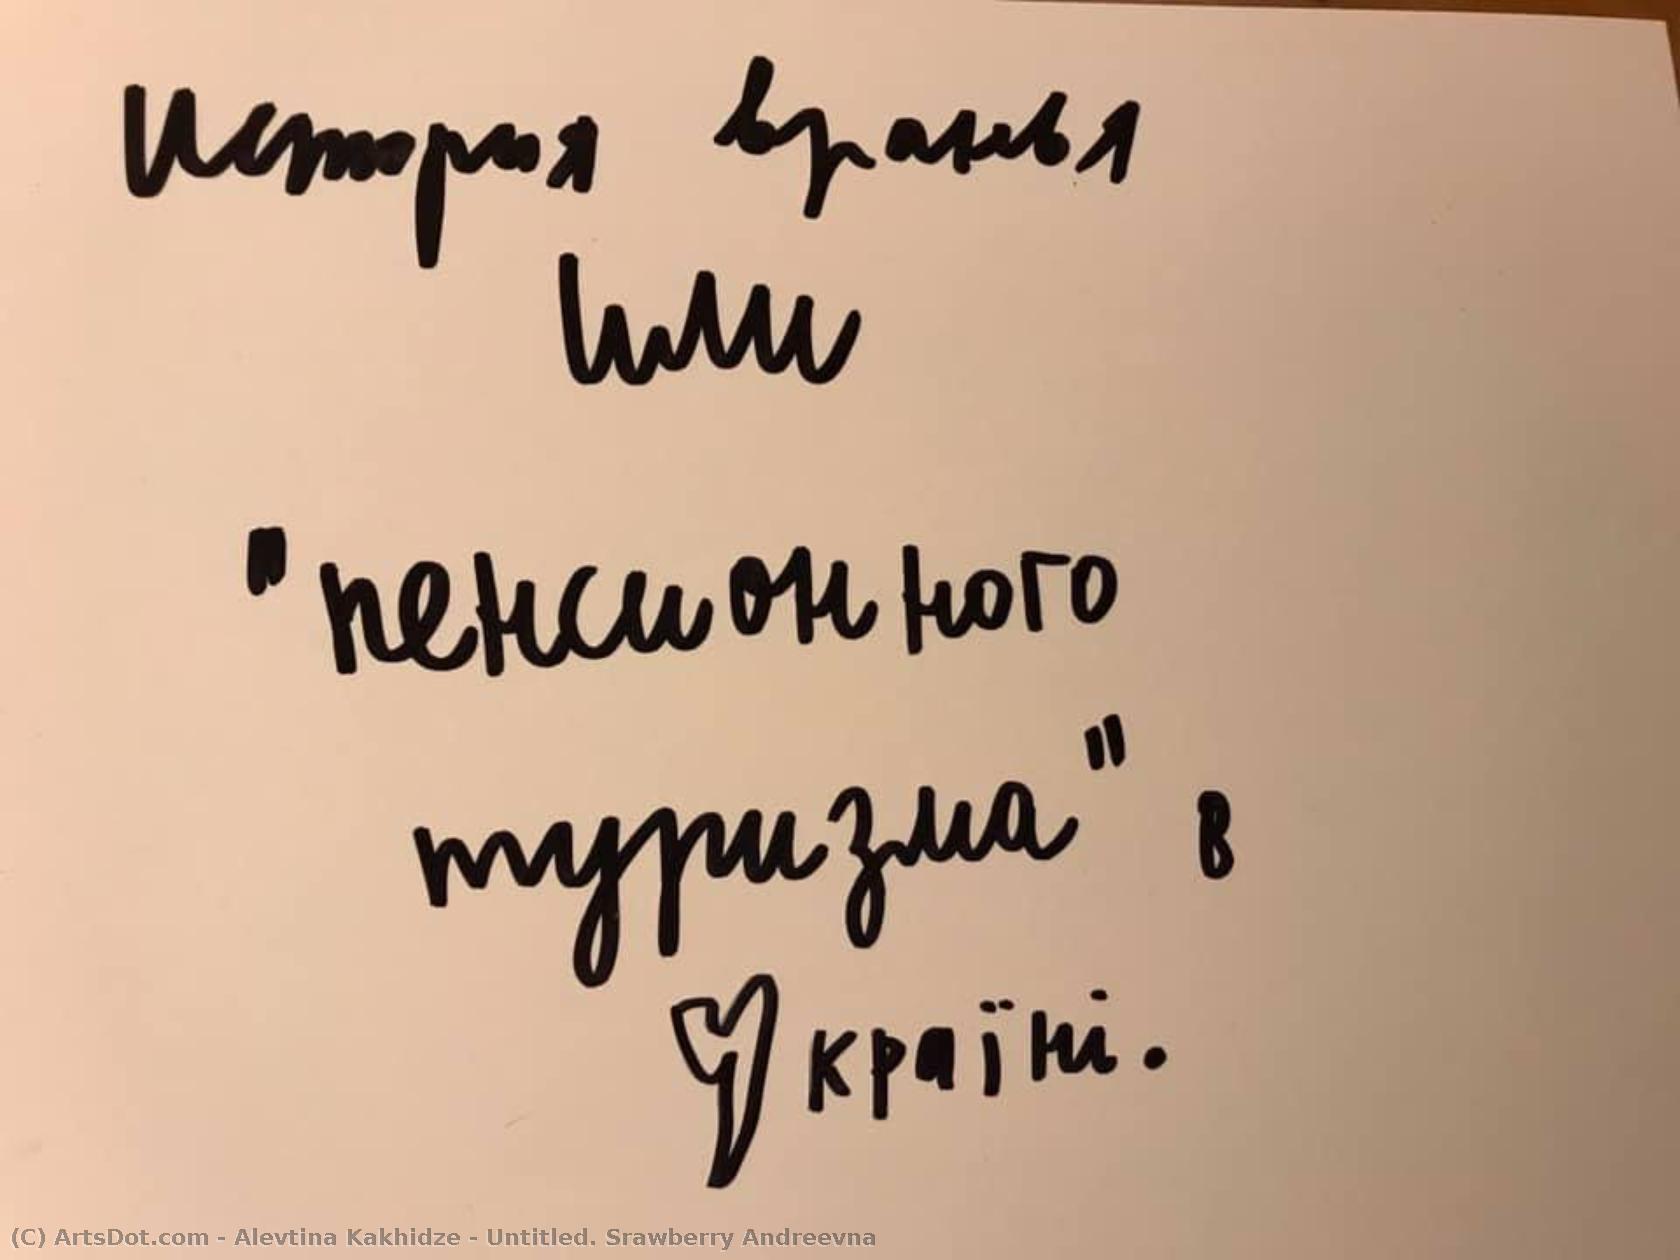 история вранья
или
"пенсионного
туризма" в
Україні.
(C) ArtsDot.com - Alevtina Kakhidze - Untitled. Srawberry Andreevna